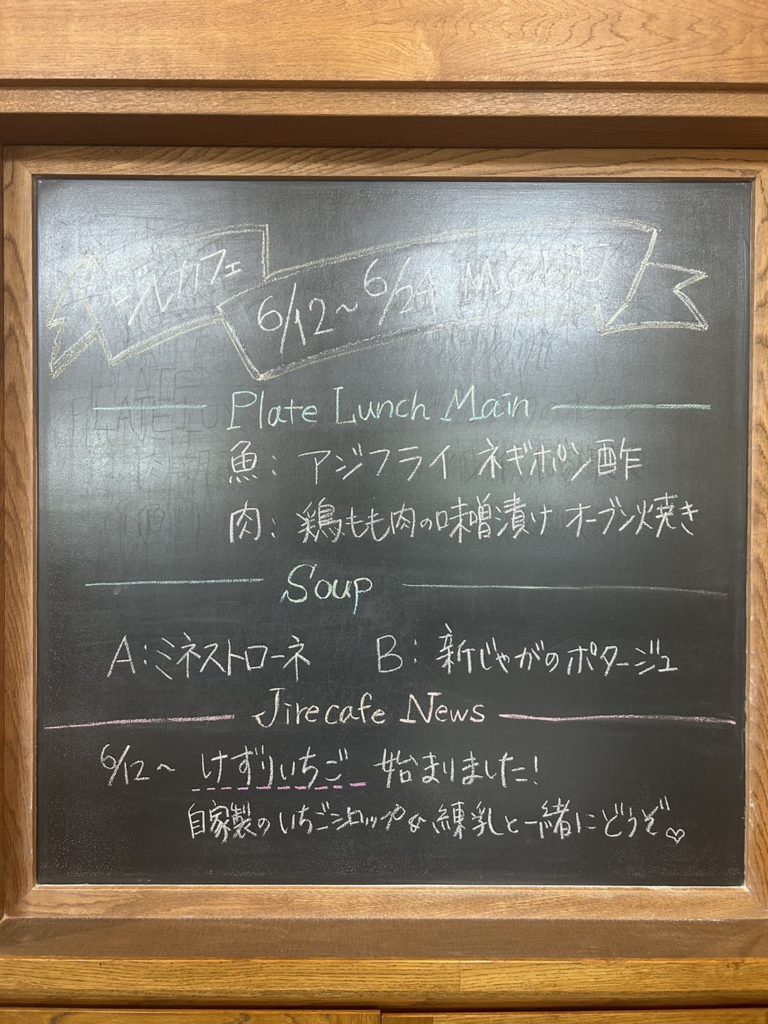 ジルカフェ 6/12〜6/24 MENU
Plate Lunch Main
魚: アジフライ ネギポン酢
肉: 鶏もも肉の味噌漬け オーブン焼き
Soup
A:ミネストローネ B: 新じゃがのポタージュ
Jirecafe News
6/12〜 けずりいちご 始まりました!
自家製のいちごシロップや練乳と一緒にどうぞ♡